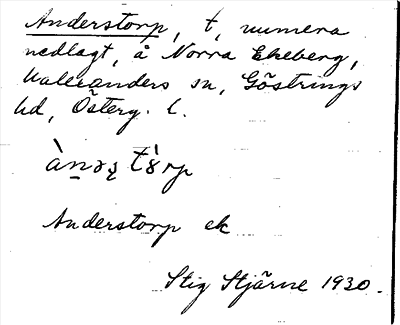 Anderstorp, t, numera
nedlagt, å Norra Ekeberg,
Vallerstads sn, Göstrings
hd, Österg. l.
Anderstorp ek
Stig Stjärne 1930.